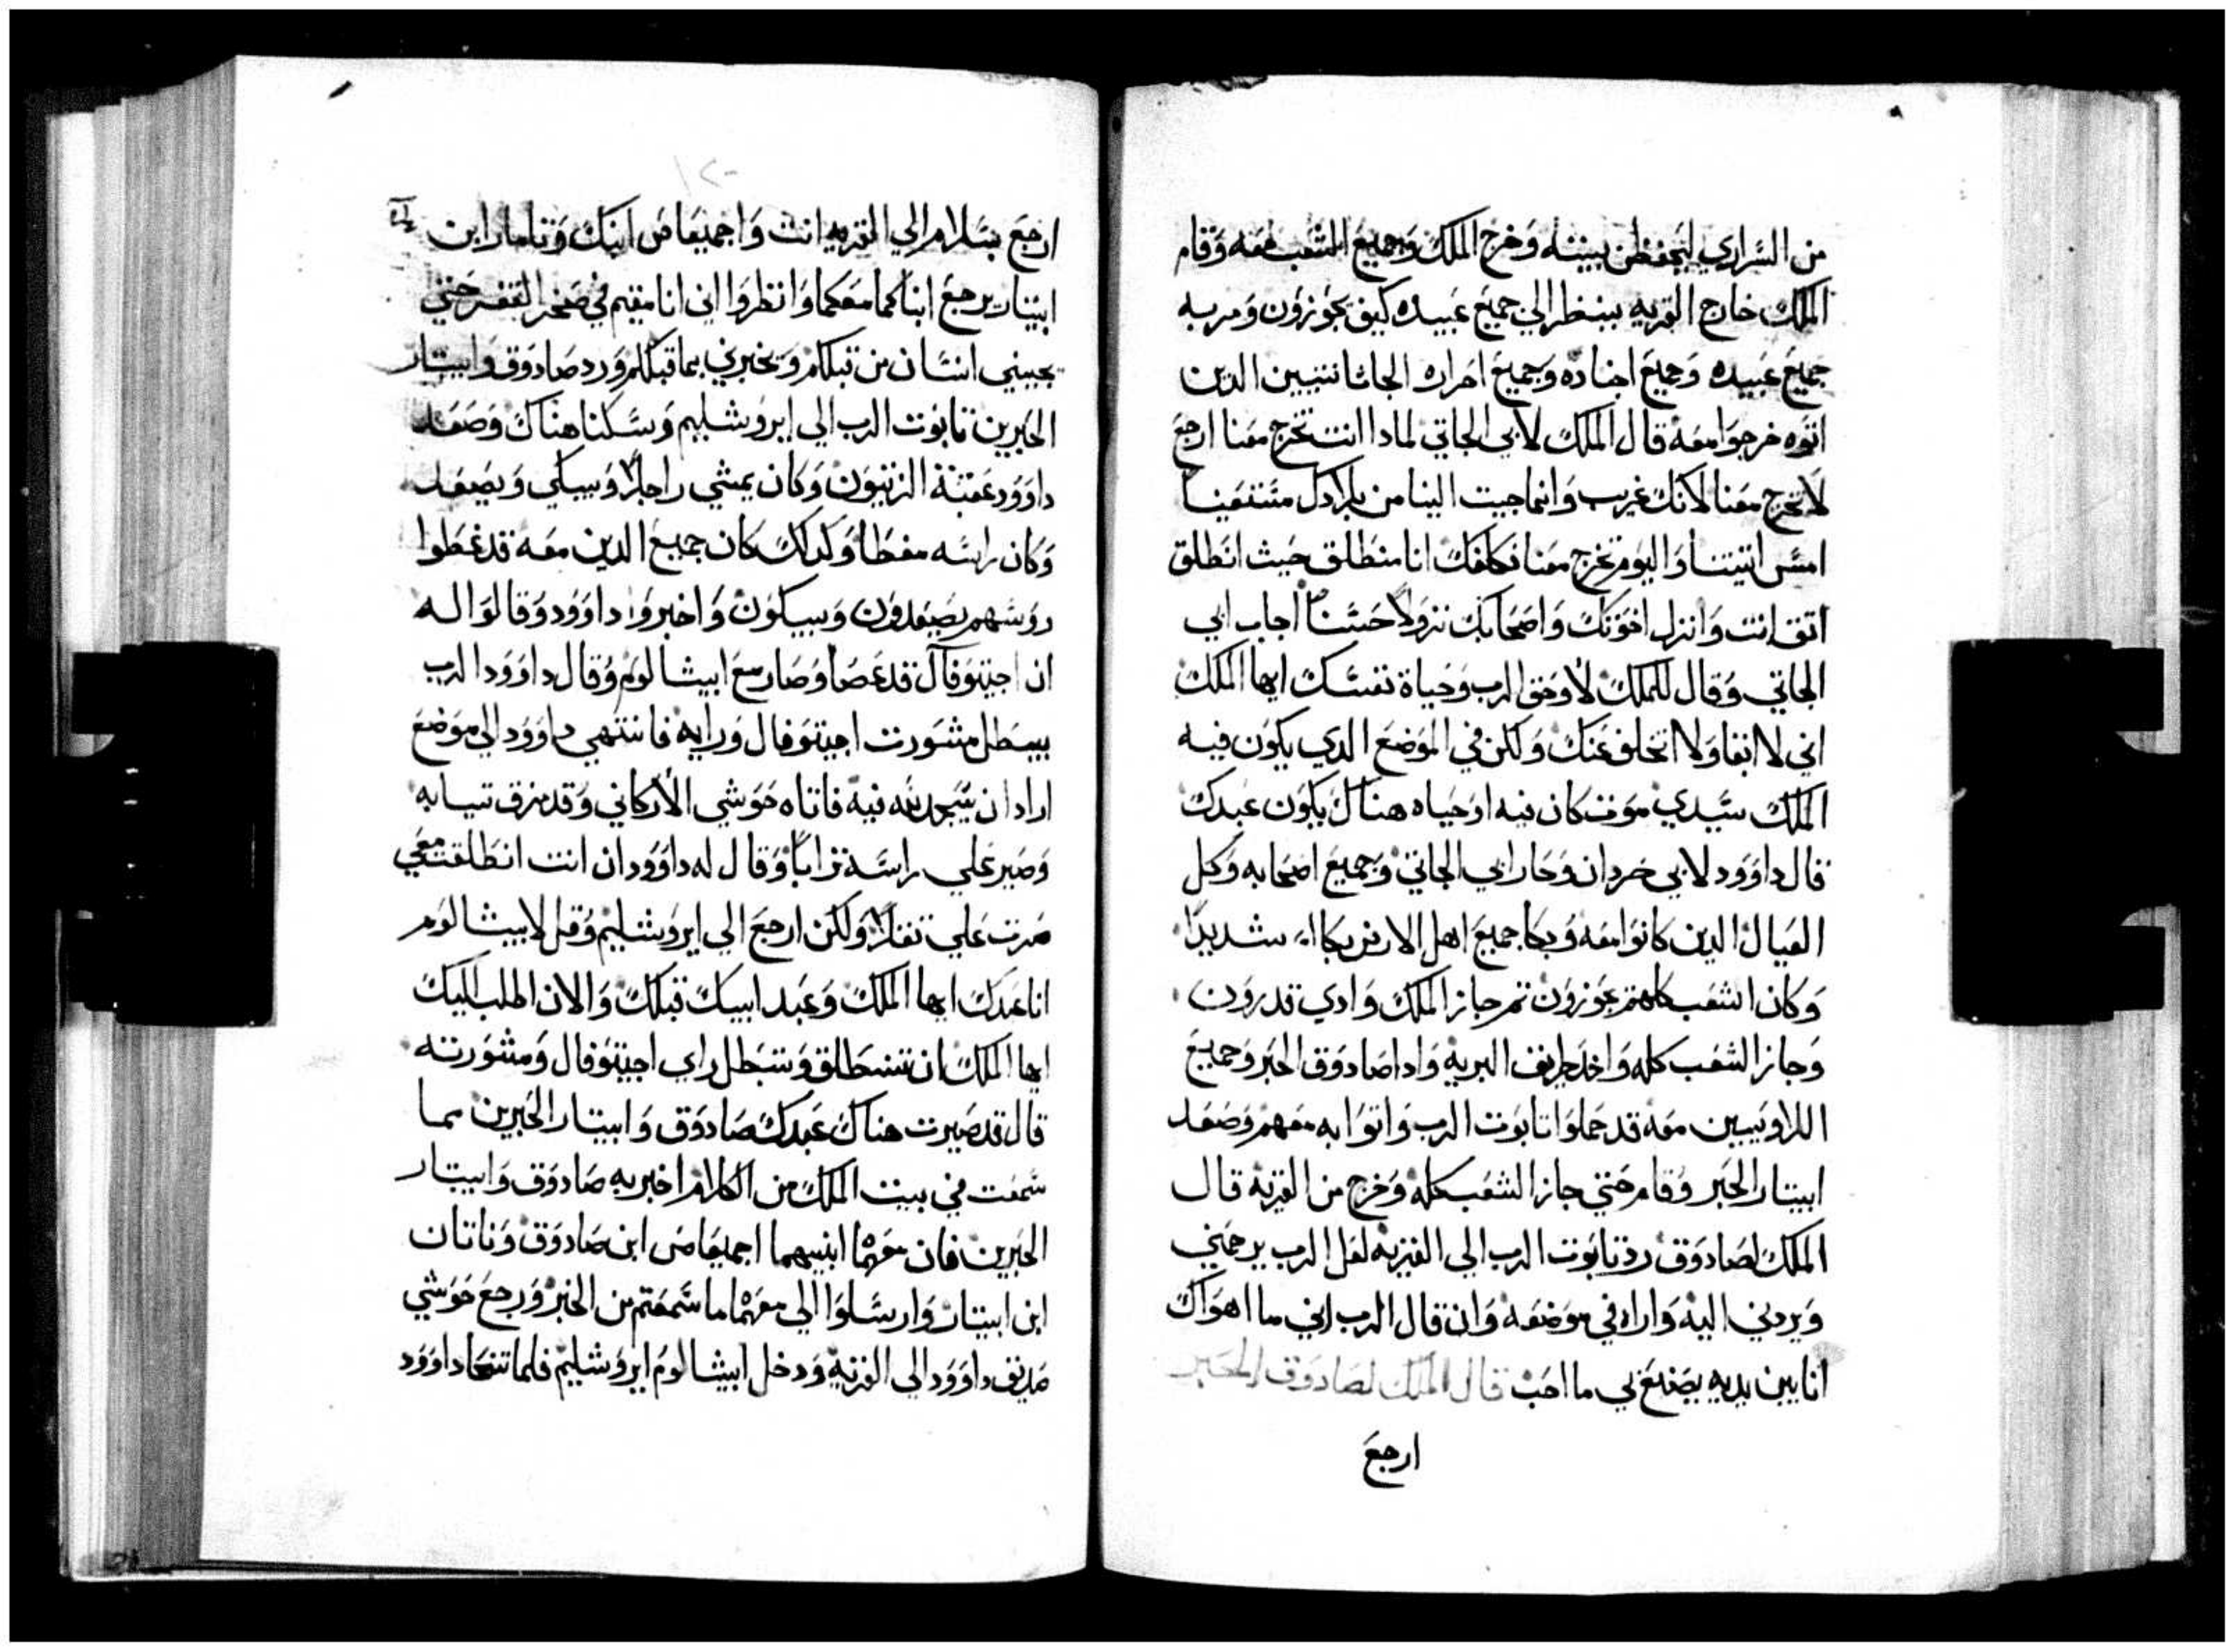 من السراري ليحفظن بيته وخرج الملك وجميع الشعب معه وقام
الملك خارج القريه ينظر الي جميع عبيده كيف يجوزون ومر به
جميع عبيده وجميع اجناده وجميع احراره الجاثانيين الدين
اتوه خرجوا معه قال الملك لابي الجاتي لمادا انت تخرج معنا ارجع
لا تخرج معنا لانك غريب وانما جيت الينا من بلادك
امس اتيتنا واليوم تخرج معنا انا منطلق حيث انطلق
انت وانزل اخوتك واصحابك نزولاً حسناً اجاب ابي
الجاتي وقال للملك لا وحق الرب وحياة نفسك ايها الملك
اني لا ابقا ولا اتخلف عنك ولكن في الموضع الدي يكون فيه
الملك سيدي موت كان فيه او حياه هناك يكون عبدك
قال داوود لابي جردان وجاز ابي الجاتي وجميع اصحابه وكل
العيال الدين كانوا معه وبكا جميع اهل الارض بكاء شديدا
وكان الشعب كلهم يجوزون تم جاز الملك وادي قدرون
وجاز الشعب كله واخد طريق البريه وادا صادوق الحبر وجميع
اللاويين معه قد حملوا تابوت الرب واتوا به معهم وصعد
ابيتار الحبر وقام حتي جاز الشعب كله وخرج من القريه قال
الملك لصادوق رد تابوت الرب الي القريه لعل الرب يرحمني
ويردني اليه واراه في موضعه وان قال الرب اني ما اهواك
انا بين يديه يصنع بي ما احب قال الملك لصادوق الحبر
ارجع
١٢٠
ارجع بسلام الي القريه انت واجميعاص ابنك وناتان ابن
ابيتار يرجع ابناكما معكما وانظروا اني انا مقيم في صحر القفر حتي
يجيني انسان من قبلكم ويخبرني بما قبلكم ورد صادوق وابيتار
الحبرين تابوت الرب الي ايروشليم وسكنا هناك وصعد
داوود عقبة الزيتون وكان يمشي راجلاً ويبكي ويصعد
وكان راسه مغطا وكدلك كان جميع الدين معه قد غطوا
روسهم يصعدون ويبكون واخبروا داوود وقالوا له
ان اجيتوفال قد عصا وصار مع ابيشالوم وقال داوود الرب
يبطل مشورت اجيتوفال ورايه فانتهي داوود الي موضع
اراد ان يسجد لله فيه فاتاه حوشي الاركاني وقد مزق تيابه
وصير علي راسه تراباً وقال له داوود ان انت انطلقت معي
صرت علي تقلاً ولكن ارجع الي ايروشليم وقل لابيشالوم
انا عبدك ايها الملك وعبد ابيك قبلك والان اطلب اليك
ايها الملك ان تنطلق وتبطل راي اجيتوفال ومشورته
قال قد صيرت هناك عبدك صادوق وابيتار الحبرين مما
سمعت في بيت الملك من الكلام اخبر به صادوق وابيتار
الحبرين فان معهما ابنيهما اجميعاص ابن صادوق وناتان
ابن ابيتار وارسلوا الي معهما ما سمعتم من الخبر ورجع حوشي
صديق داوود الي القريه ودخل ابيشالوم ايروشليم فلما تنحا داوود